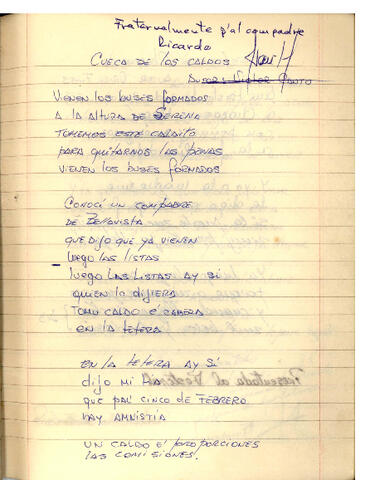 Fraternalmente p'al compadre
Ricardo
CUECA DE LOS CALDOS
Autor: Victor Canto
VIENEN LOS BUSES FORMADOS
A LA ALTURA DE SERENA
TOMEMOS ESTE CALDITO
PARA QUITARNOS LAS PENAS
VIENEN LOS BUSES FORMADOS
CONOCI UN COMPADRE
DE BELLAVISTA
QUE DIJO QUE YA VIENEN
LUEGO LAS LISTAS
LUEGO LAS LISTAS AY SÍ
QUIEN LO DIJIERA
TOMO CALDO E'
EN LA TETERA
EN LA TETERA AY SÍ
DIJO MI TIA
QUE PAL' CINCO DE FEBRERO
HAY AMNISTIA
UN CALDO E' PROPORCIONES
LAS COMISIONES.